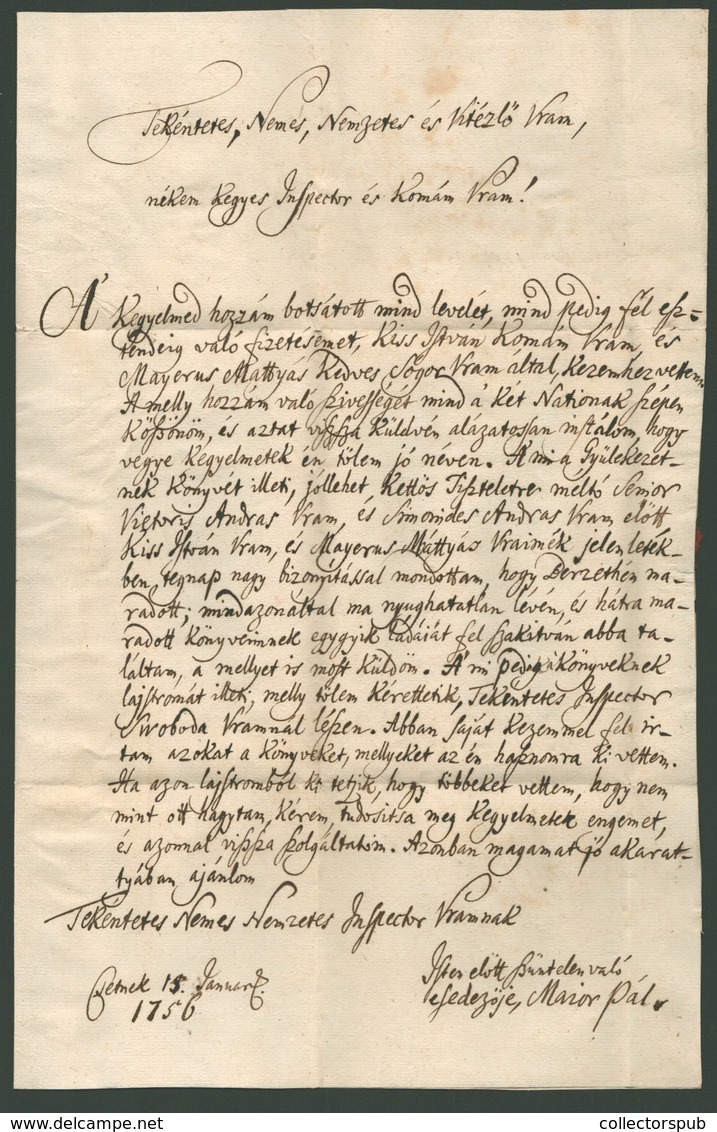 Tekéntetes, Nemes, Nemzetes és Vitézlő Vram,
nékem Kegyes Inspector és Komám Vram!
A' Kegyelmed hozzám botsátott mind levelét, mind pedig fél esz=
tendeig való fizetésemet, Kiss István Komám Vram, és
Mayerus Mattyás Kedves Sógor Vram által, kezemhez vettem.
A melly hozzám való szivességét mind á két Nationak szépen
köszönöm, és aztat vissza küldvén alázatossan instálom, hogy
vegye Kegyelmetek én tölem jó néven. A' mi a Gyülekezet-
nek Könyvét illeti, jóllehet Kettös Tiszteletre méltó Senior
Victoris Andras Vram, és Simonides Andras Vram elött
Kiss István Vram, és Mayerus Máttyás Vraimék jelenletek-
ben, tegnap nagy bizonyitással mondottam, hogy Berzethén ma-
radott; mindazonáltal ma nyughatatlan lévén, és hátra ma-
radott Könyveimnek egygyik ládáját fel szakitván abba ta-
láltam, a mellyet is most küldöm. A' mi pedig a könyveknek
lajstromát illeti, melly tölem kérettetik, Tekéntetes Inspector
Swoboda Vramnál lészen. Abban saját kezemmel fel ir-
tam azokat a könyveket, mellyeket az én hasznomra ki vettem.
Ha azon lajstromból ki tetzik, hogy többeket vettem, hogy nem
mint ott hagytam, kérem, tudositsa meg Kegyelmetek engemet,
és azonnal vissza szolgáltatom. Azonban magamat jó akarat-
tyában ajánlom
Tekéntetes Nemes Nemzetes Inspector Vramnak
Isten elött szüntelen való
esedezöje, Maior Pál
Csetnek 15. Januar.
1756
www.delcampe.net
collectorspub